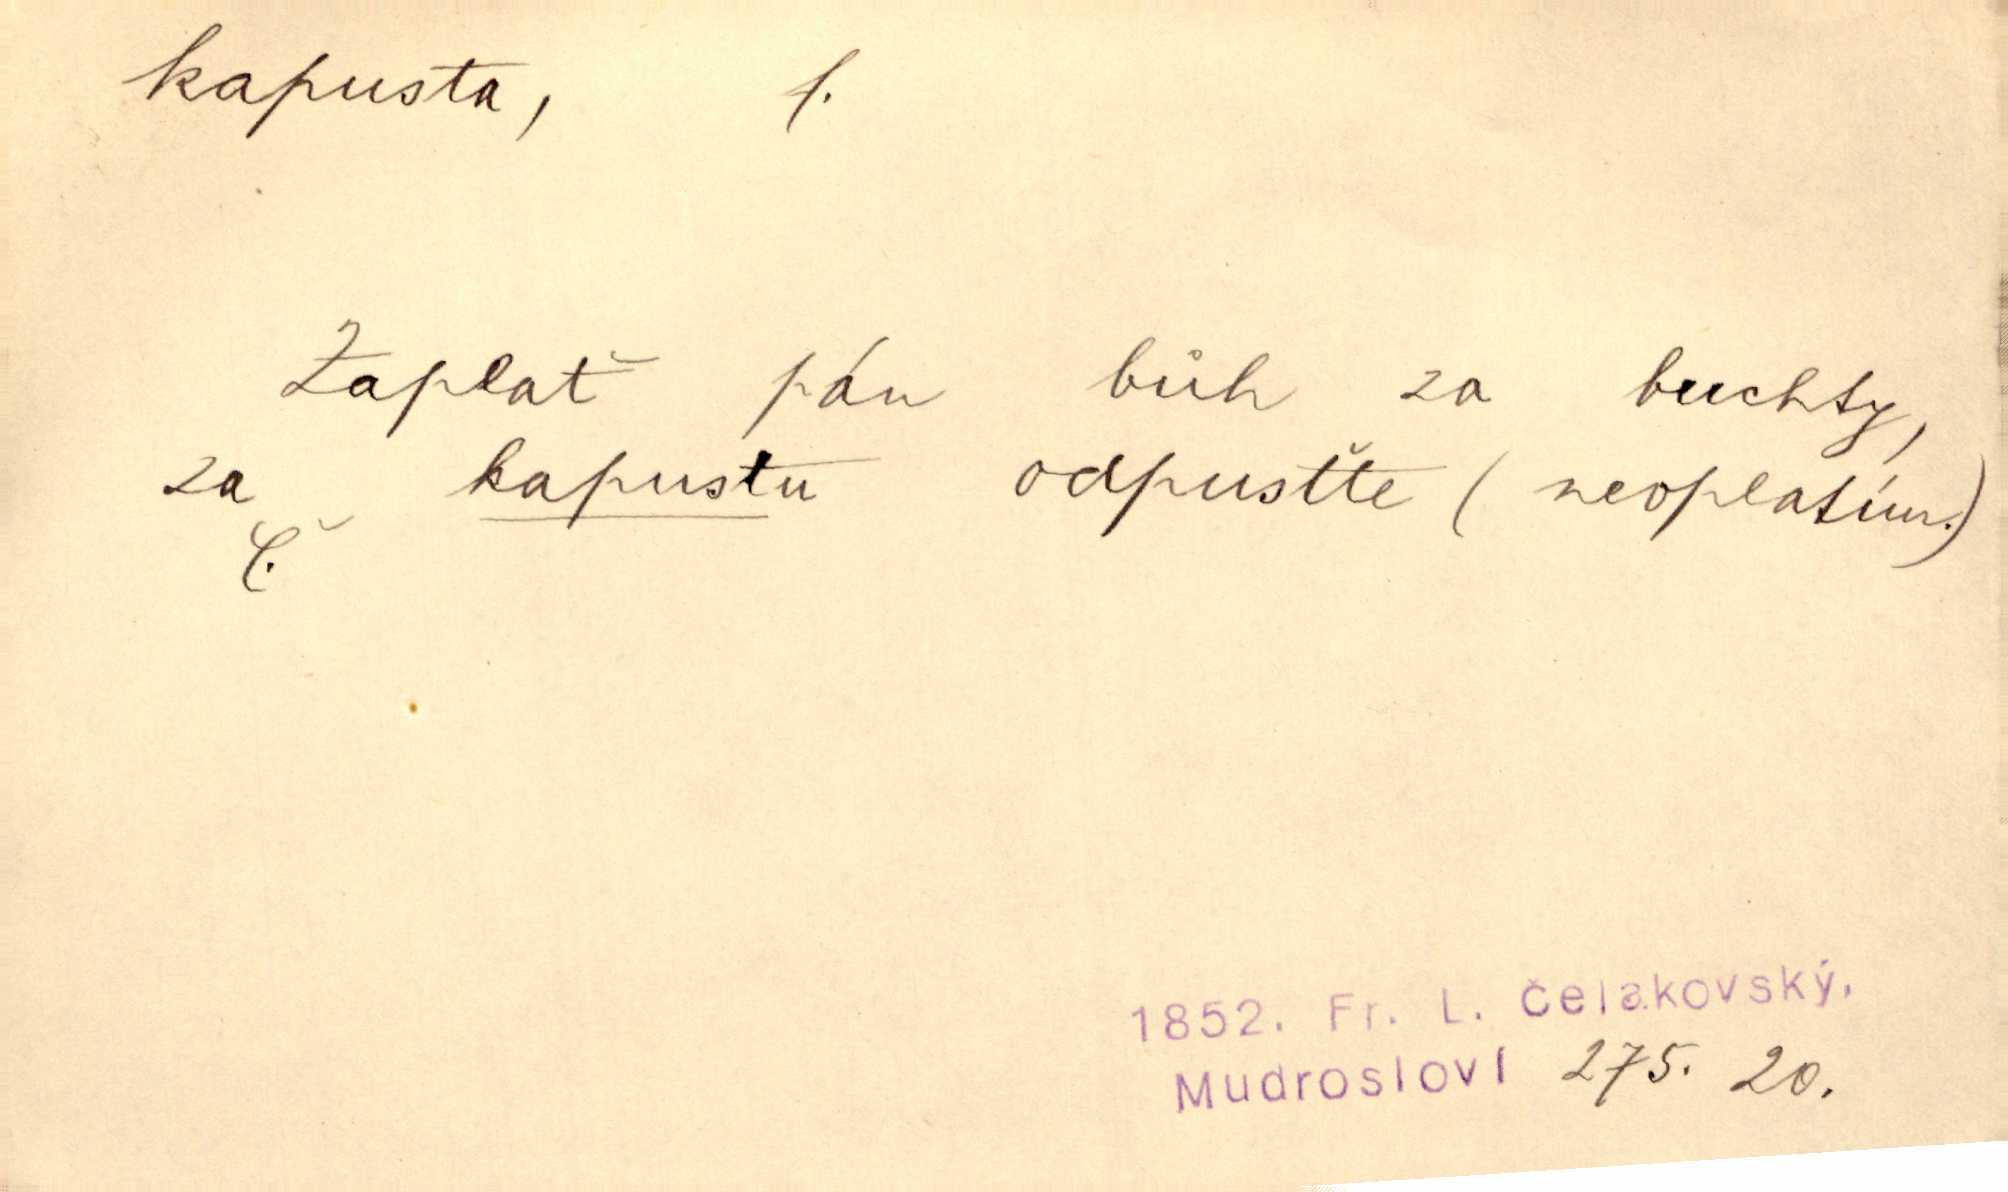 kapusta, f.
Zaplať pán bůh za buchty,
za kapustu odpusťte (neoplatím.)
Č.
1852. Fr. L. Čelakovský.
Mudrosloví 275. 20.